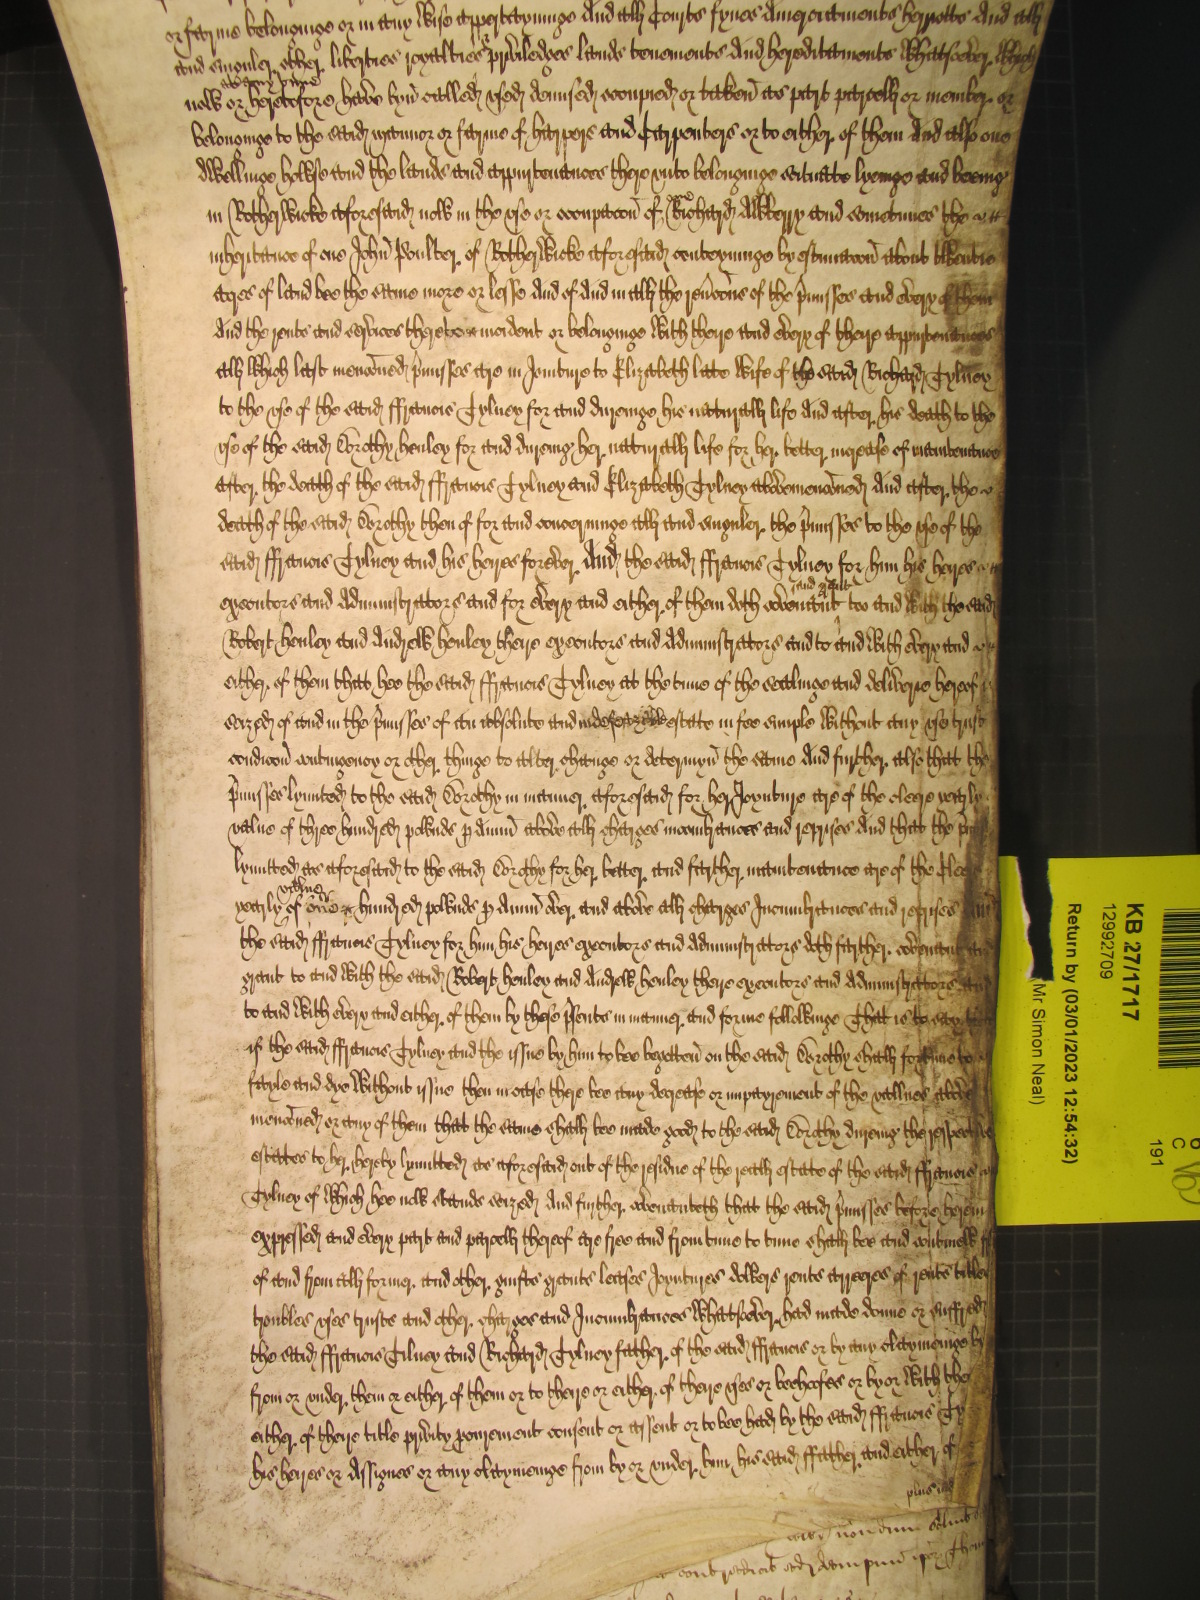 or farme belonginge or in any wise appertayninge And all Courts fynes Amerciaments herriotts And all
and singuler other liberties royalties priviledges lands tenements And hereditaments Whatsoever Which
att any time
now or heretofore have byn called used demised occupied or taken as part parcell or member or
belonginge to the said mannor or farme of harpers and Carpenters or to either of them And also one
dwellinge howse and the lands and appurtenances there unto belonginge scituate lyeinge and beeing
in Rotherwicke aforesaid now in the use or occupacon of Richard Alberry and sometimes the
inheritance of one John Poulter of Rotherwicke aforesaid conteyninge by estimacon about twentie
acres of land bee the same more or lesse And of And in all the revcons of the p'misses and every of them
And the rents and services thereto incident or belonginge With theire and every of theire appurtenances
all Which last menconed p'misses are in Joincture to Elizabeth late Wife of the said Richard Tylney
to the use of the said ffrancis Tylney for and dureinge his naturall life And after his death to the
use of the said Dorothy henley for and dureing her naturall life for her better increase of maintenance
after the death of the said ffrancis Tylney and Elizabeth Tylney abovemenconed And after the
death of the said Dorothy then of for and concerninge all and singuler the p'misses to the use of the
said ffrancis Tylney and his heires forever And the said ffrancis Tylney for him his heires
and graunt
executors and Administrators and for every and either of them doth covenant too and With the said
Robert henley and Andrew henley theire executors and Administrators and to and With every and
either of them that hee the said ffrancis Tylney at the time of the sealinge and deliverie hereof
seized of and in the p'misses of an absolute and indefeazible estate in fee simple Without any use trust
condicon contingency or other thinge to alter change or determyn the same And further also that the
p'misses lymitted to the said Dorothy in manner aforesaid for her Joyncture are of the cleere yearly
value of three hundred pownds p annu above all charges incumbrances and reprises And that the
lymitted as aforesaid to the said Dorothy for her better and farther maintenance are of the Cleere
value
yearly of one hundred pownds p Annu over and above all charges Incumbrances and reprises And
the said ffrancis Tylney for him his heires executors and Administrators doth farther covenant and
graunt to and With the said Robert henley and Andrew henley there executors and Administrators and
to and With every and either of them by these p'sents in manner and forme followinge That is to say
if the said ffrancis Tylney and the issue by him to bee begotten on the said Dorothy shall fortune to
fayle and dye Without issue then in case there bee any decrease or impayrement of the vallues above
menconed or any of them that the same shall bee made good to the said Dorothy dureing the respective
estates to her hereby lymitted as aforesaid out of the residue of the reall estate of the said ffrancis
Tylney of Which hee now stands seized And further covenanteth that the said p'misses before herein
expressed and every part and parcell thereof are free and from time to time shall bee and continew
of and from all former and other guifts grants leases Joyntures dowers rents arreares of rents titles
troubles uses trusts and other charges and Incumbrances Whatsoever had made donne or suffred
the said ffrancis Tilney and Richard Tylney father of the said ffrancis or by any claymeinge by
from or under them or either of them or to theire or either of theire uses or beehoofes or by or With the
either of theire title privity p'curement consent or assent or to bee had by the said ffrancis
his heires or Assignes or any claymeinge from by or under him his said ffather and either of
plus
KB 27/1717
12992709
Return by (03/01/2023 12:54:32)
Mr Simon Neal)
191
C